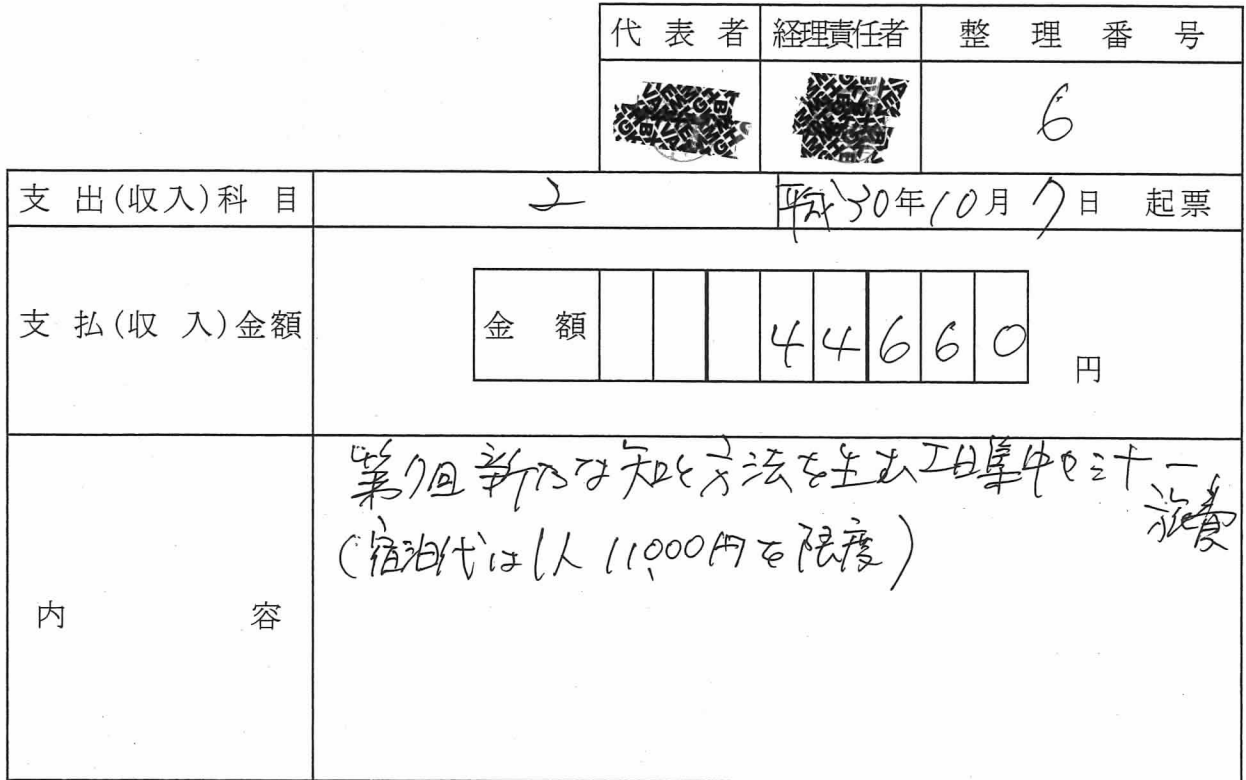 代表者 経理責任者 整理番号
6
支出(収入)科目 2 平成30年10月7日 起票
支払(収入)金額 金額 44660 円
第7回新たな知と方法を生む 集中セミナー
旅費
(宿泊代は1人11,000円を限度)
内容